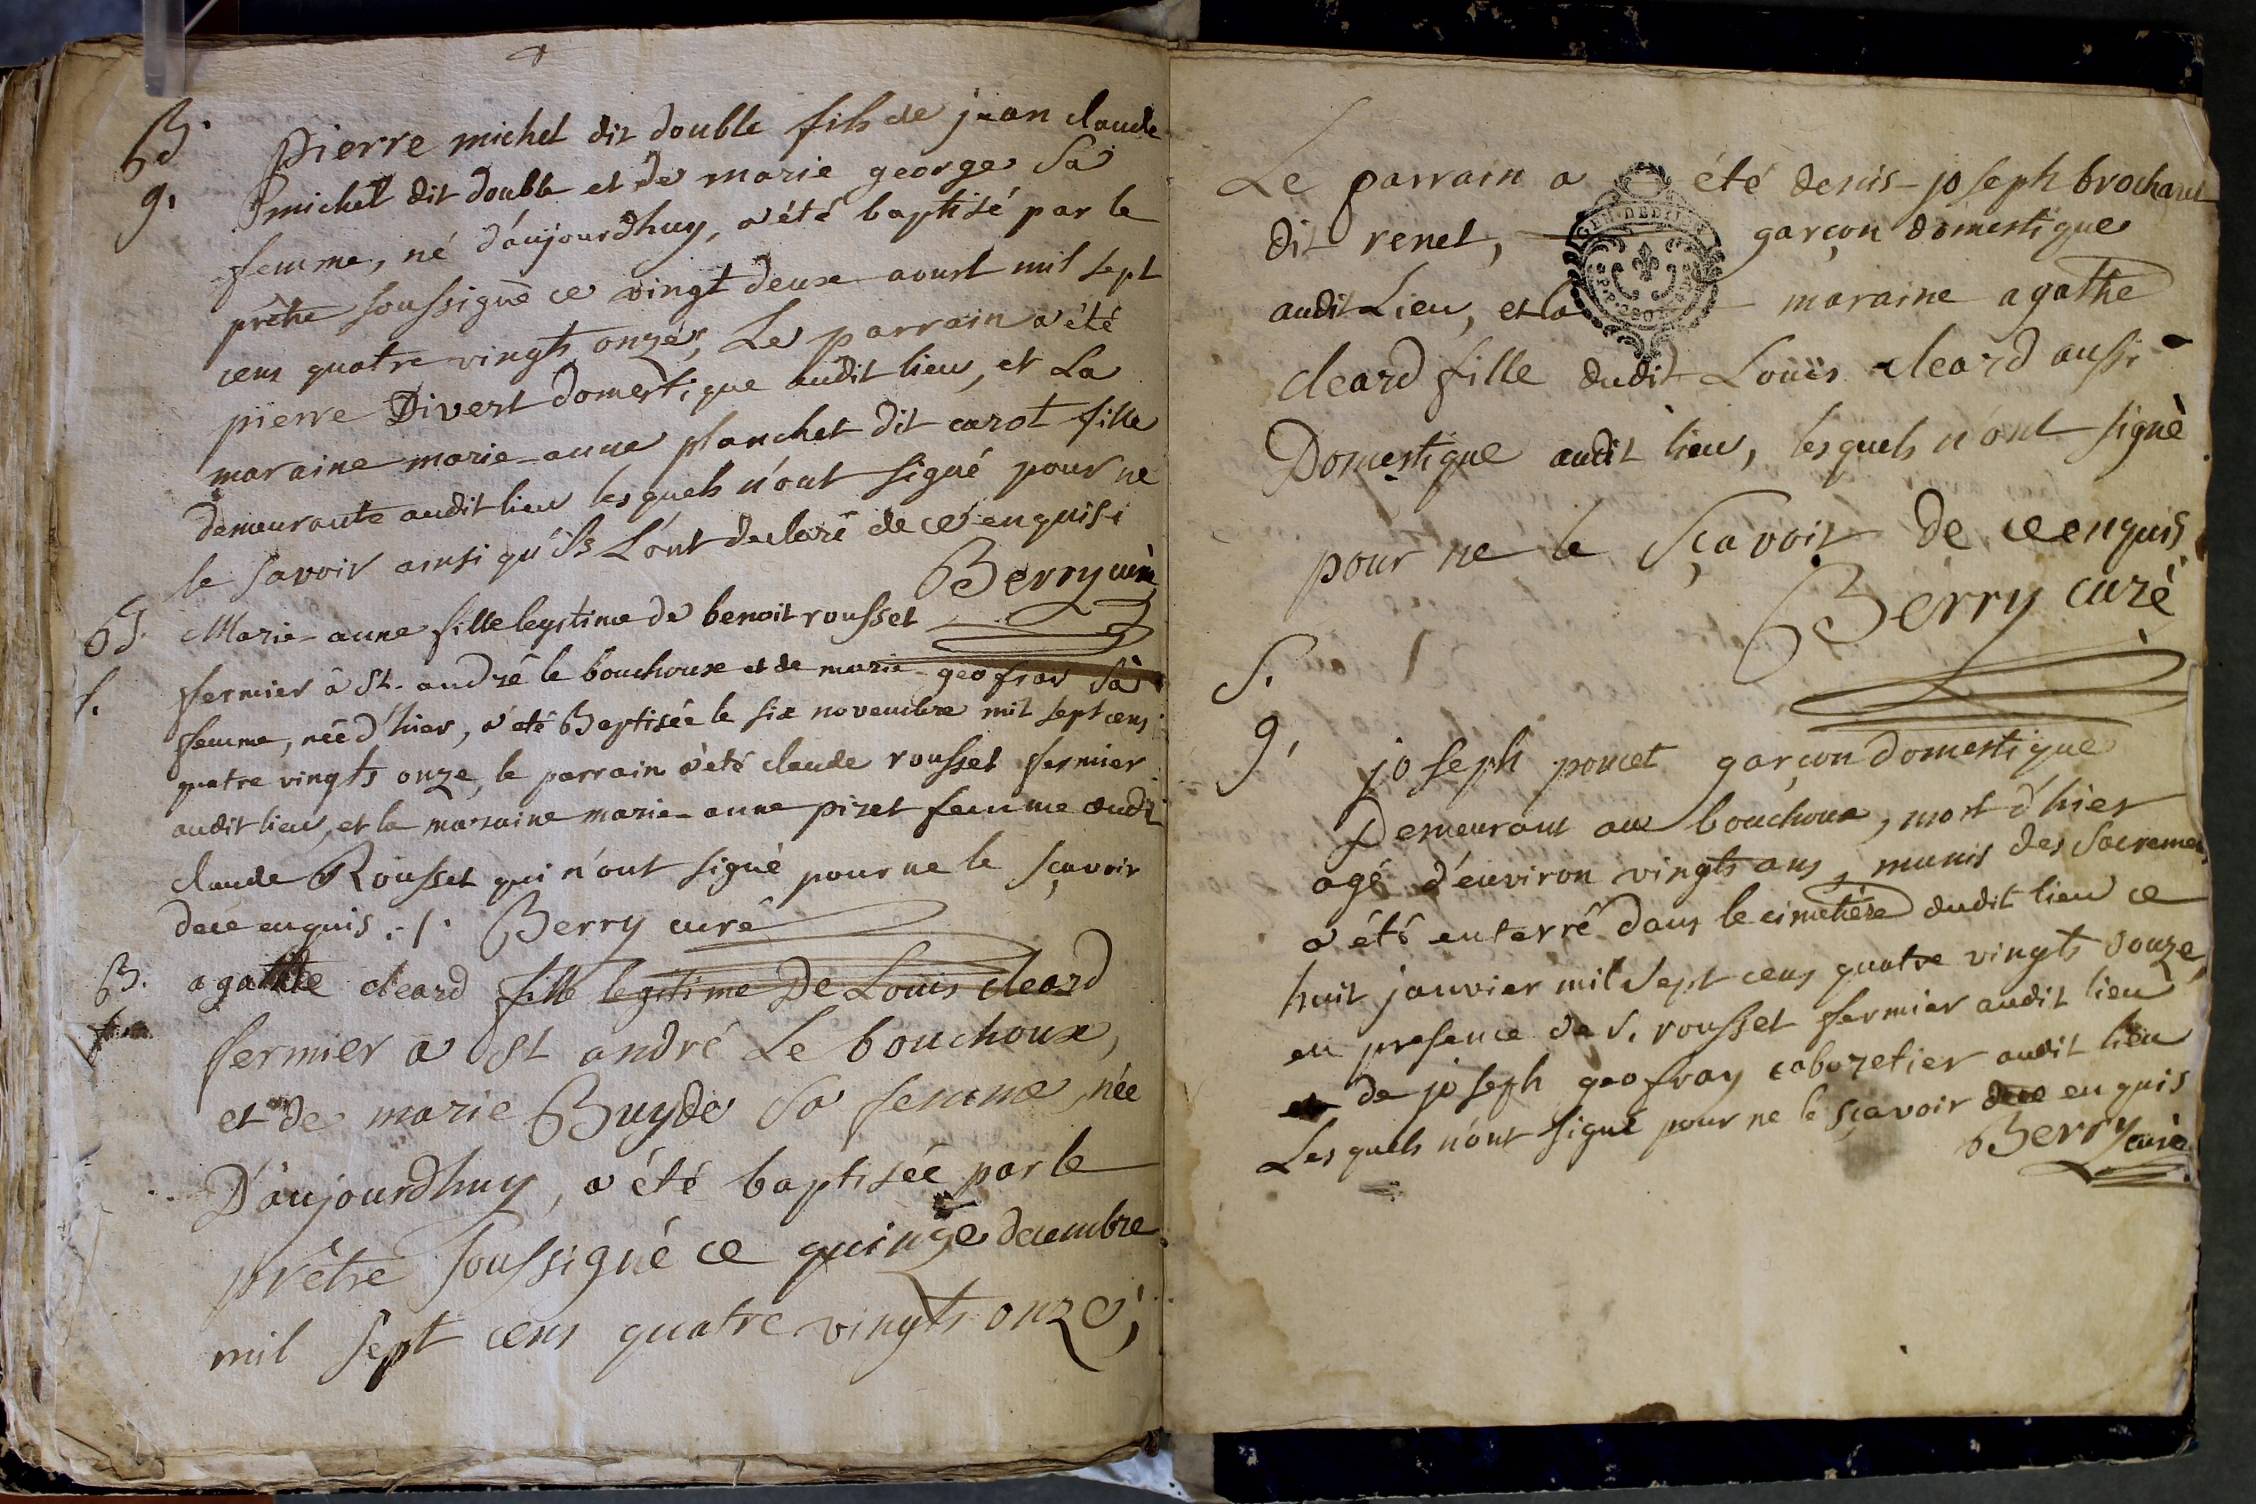 B.
g.
pierre michel dit double fils de jean claude
michel dit double et de marie george sa
femme, né d'aujourdhuy, a été baptisé par le
prêtre soussigné ce vingt deux aoust mil sept
cens quatre vingts onze, Le parrain a été
pierre Divert domestique audit lieu, et La
maraine marie-anne planchet dit carot fille
demeurante audit lieu lesquels n'ont signé pour ne
le savoir ainsi qu'ils L'ont declaré de ce enquis.
Berry curé
B.
f.
Marie-anne fille legitime de benoit rousset
fermier à St. andré le bouchoux et de marie geofray sa
femme, née d'hier, a été Baptisée le six novembre mil sept cens
quatre vingts onze, le parrain a été claude rousset fermier
audit lieu, et la maraine marie-anne pizet femme dudit
claude Rousset qui n'ont signé pour ne le sçavoir
de ce enquis ./. Berry curé
B.
f.
agathe cleard fille legitime De Louis cleard
fermier a St andré Le bouchoux,
et de marie Buyde sa femme, née
D'aujourdhuy, a été baptisée par le
prêtre soussigné ce quinze decembre
mil sept cens quatre vingts onze;
Le parrain a été denis-joseph brochand
dit renel, garçon domestique
audit Lieu, et la maraine agathe
cleard fille dudit Louis cleard aussi
Domestique audit lieu, lesquels n'ont signè
pour ne le sçavoir De ce enquis
Berry curè
S.
g.
joseph poncet garçon domestique
Demeurant au bouchoux, mort d'hier
agé d'environ vingts ans, munis des sacremens
a été enterré dans le cimetière dudit lieu ce
huit janvier mil sept cens quatre vingts douze,
en presence de S. rousset fermier audit lieu
et de joseph geofray cabaretier audit lieu
Lesquels n'ont signé pour ne le sçavoir de ce enquis
Berry curé